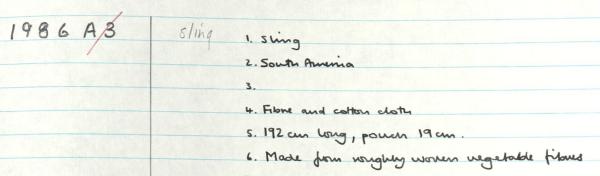 1986 A3 sling 1. Sling
2. South America
3.
4. Fibre and cotton cloth
5. 192 cm long, pouch 19 cm.
6. Made from roughly woven vegetable fibres